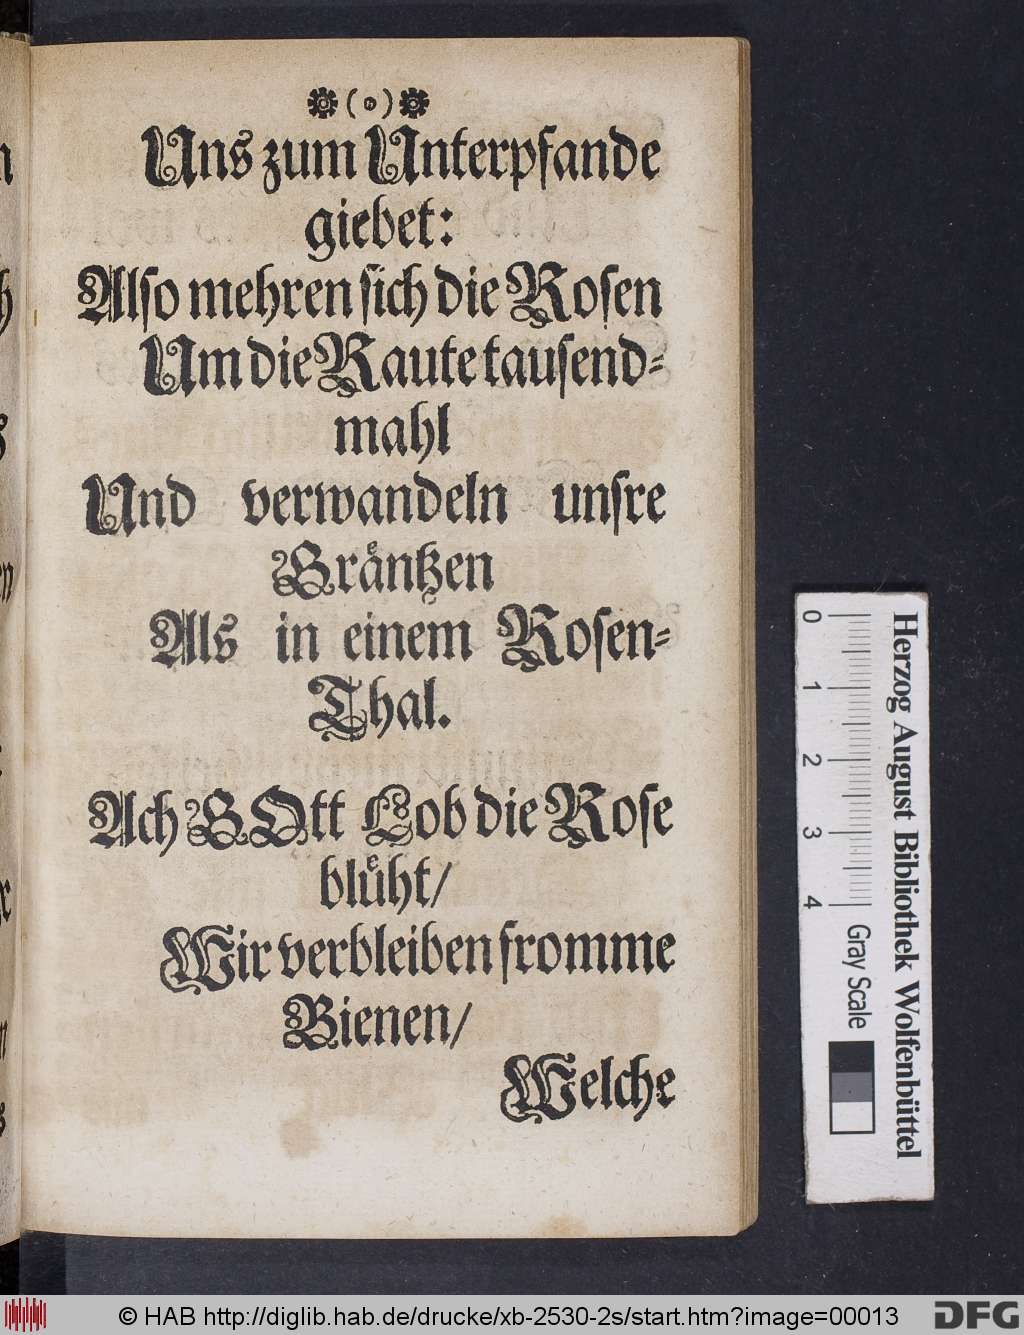 ❁(o)❁
Uns zum Unterpfande
giebet:
Also mehren sich die Rosen
Um die Raute tausend=
mahl
Und verwandeln unsre
Gräntzen
Als in einem Rosen=
Thal.
Ach GOtt Lob die Rose
blüht/
Wir verbleiben fromme
Bienen/
Welche
0 1 2 3 4
Gray Scale
Herzog August Bibliothek Wolfenbüttel
© HAB http://diglib.hab.de/drucke/xb-2530-2s/start.htm?image=00013
DFG